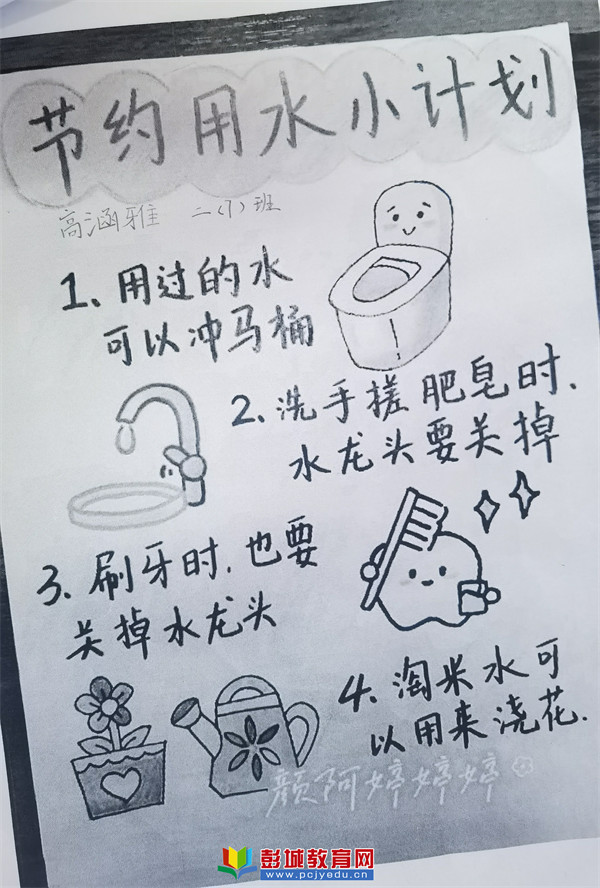 节约用水小计划
高涵雅 二(1)班
1、用过的水
可以冲马桶
2、洗手搓肥皂时,
水龙头要关掉
3、刷牙时,也要
关掉水龙头
4、淘米水可
以用来浇花.
颜阿婷婷婷
彭城教育网
www.pcjyedu.cn